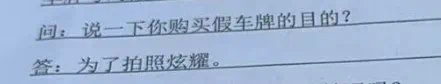 问：说一下你购买假车牌的目的？
答：为了拍照炫耀。